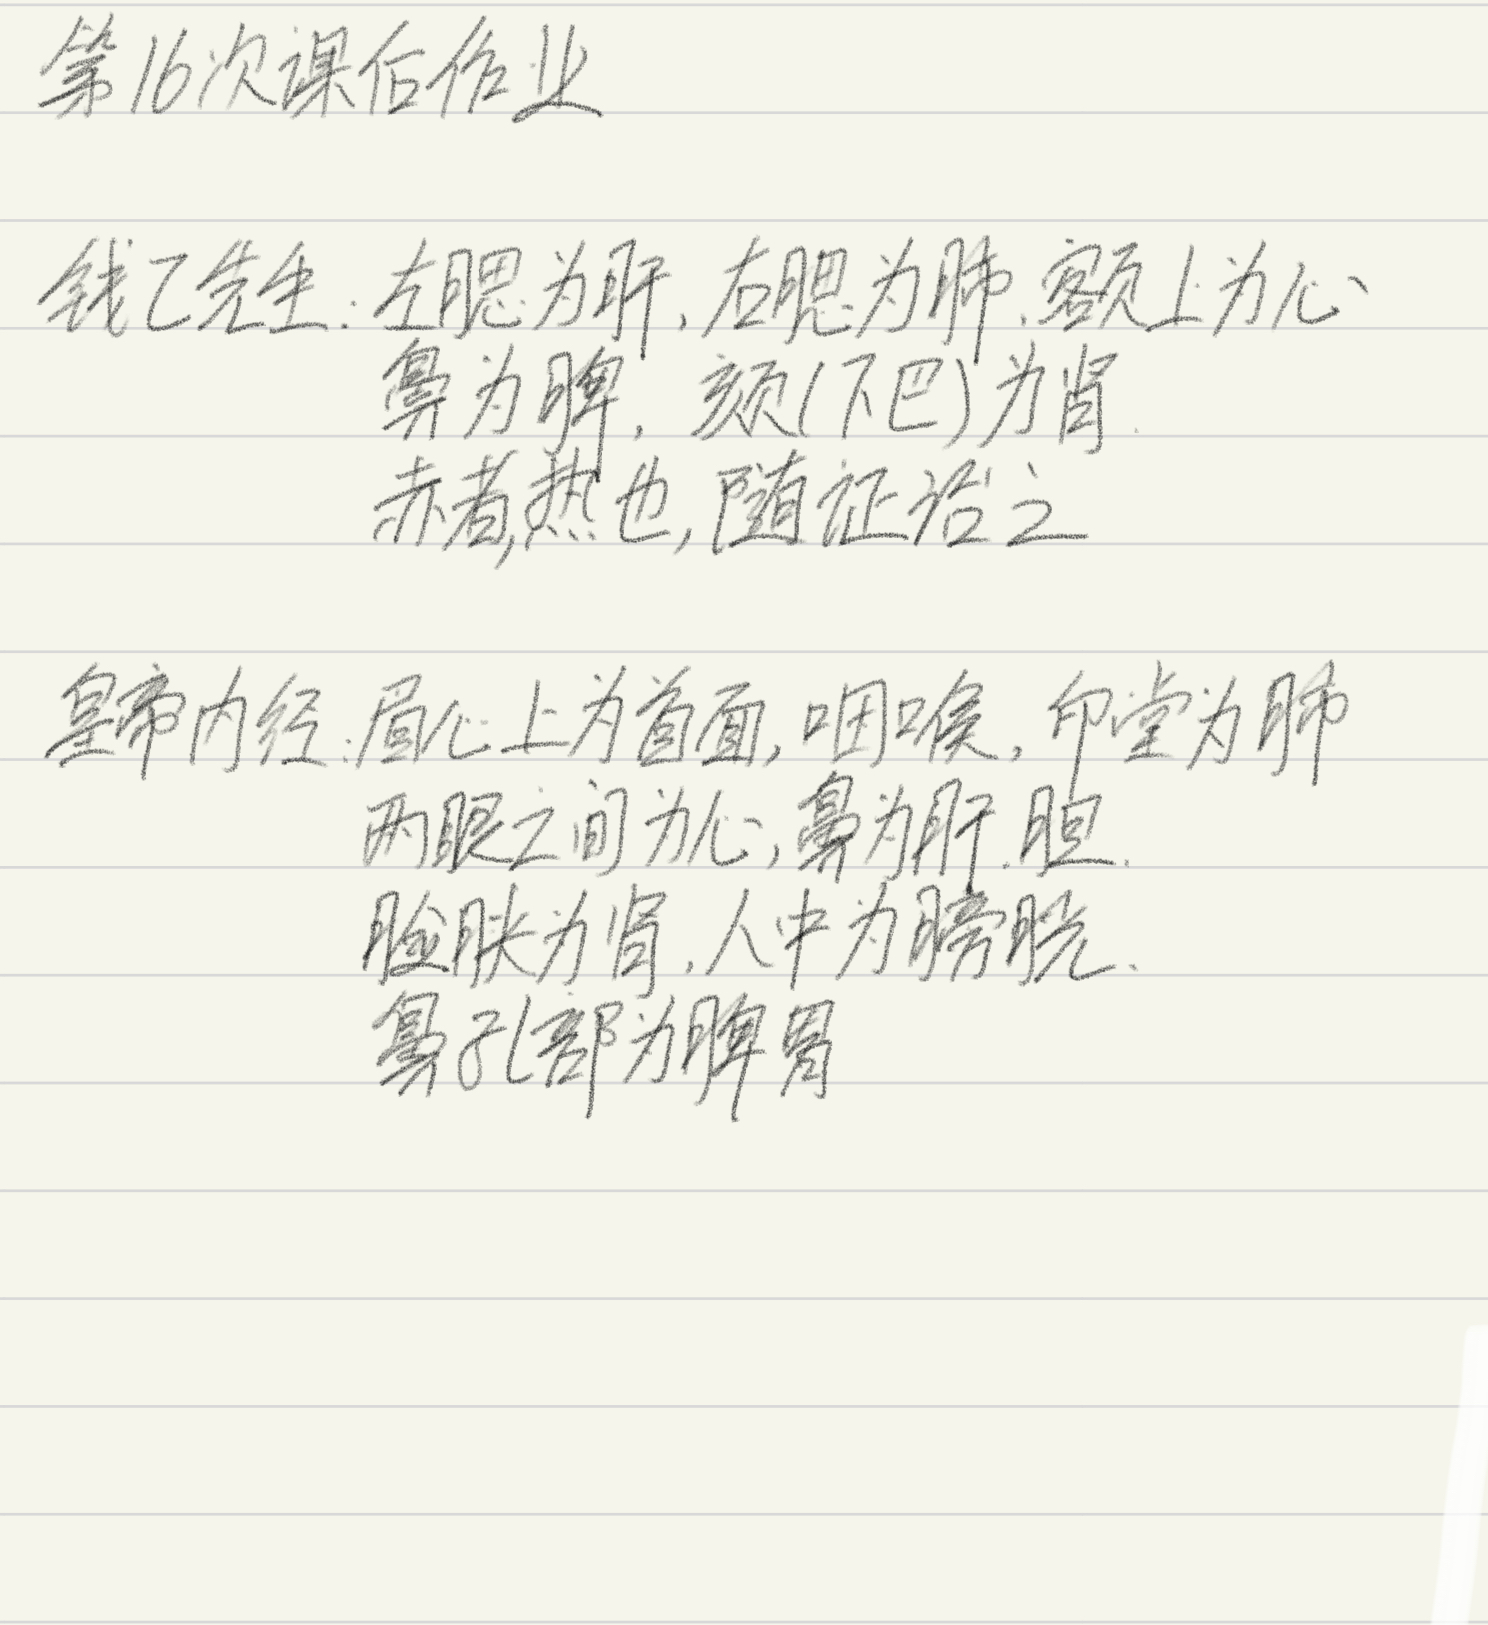 第16次课后作业
钱乙先生:左腮为肝,右腮为肺,额上为心
鼻为脾,颏(下巴)为肾.
赤者,热也,随证治之
皇帝内经:眉心上为首面,咽喉,印堂为肺
两眼之间为心,鼻为肝.胆.
脸肤为肾.人中为膀胱.
鼻孔部为脾胃